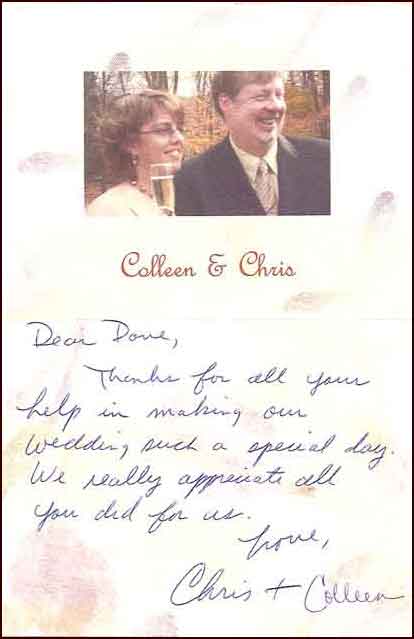 Colleen & Chris
Dear Dave,
Thanks for all your
help in making our
wedding such a special day.
We really appreciate all
you did for us.
Love,
Chris + Colleen